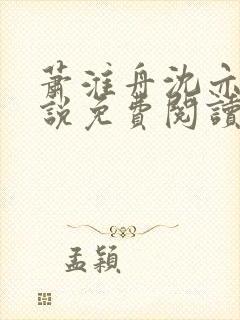 蕭淮舟沈亦
說免費閱讀
孟穎